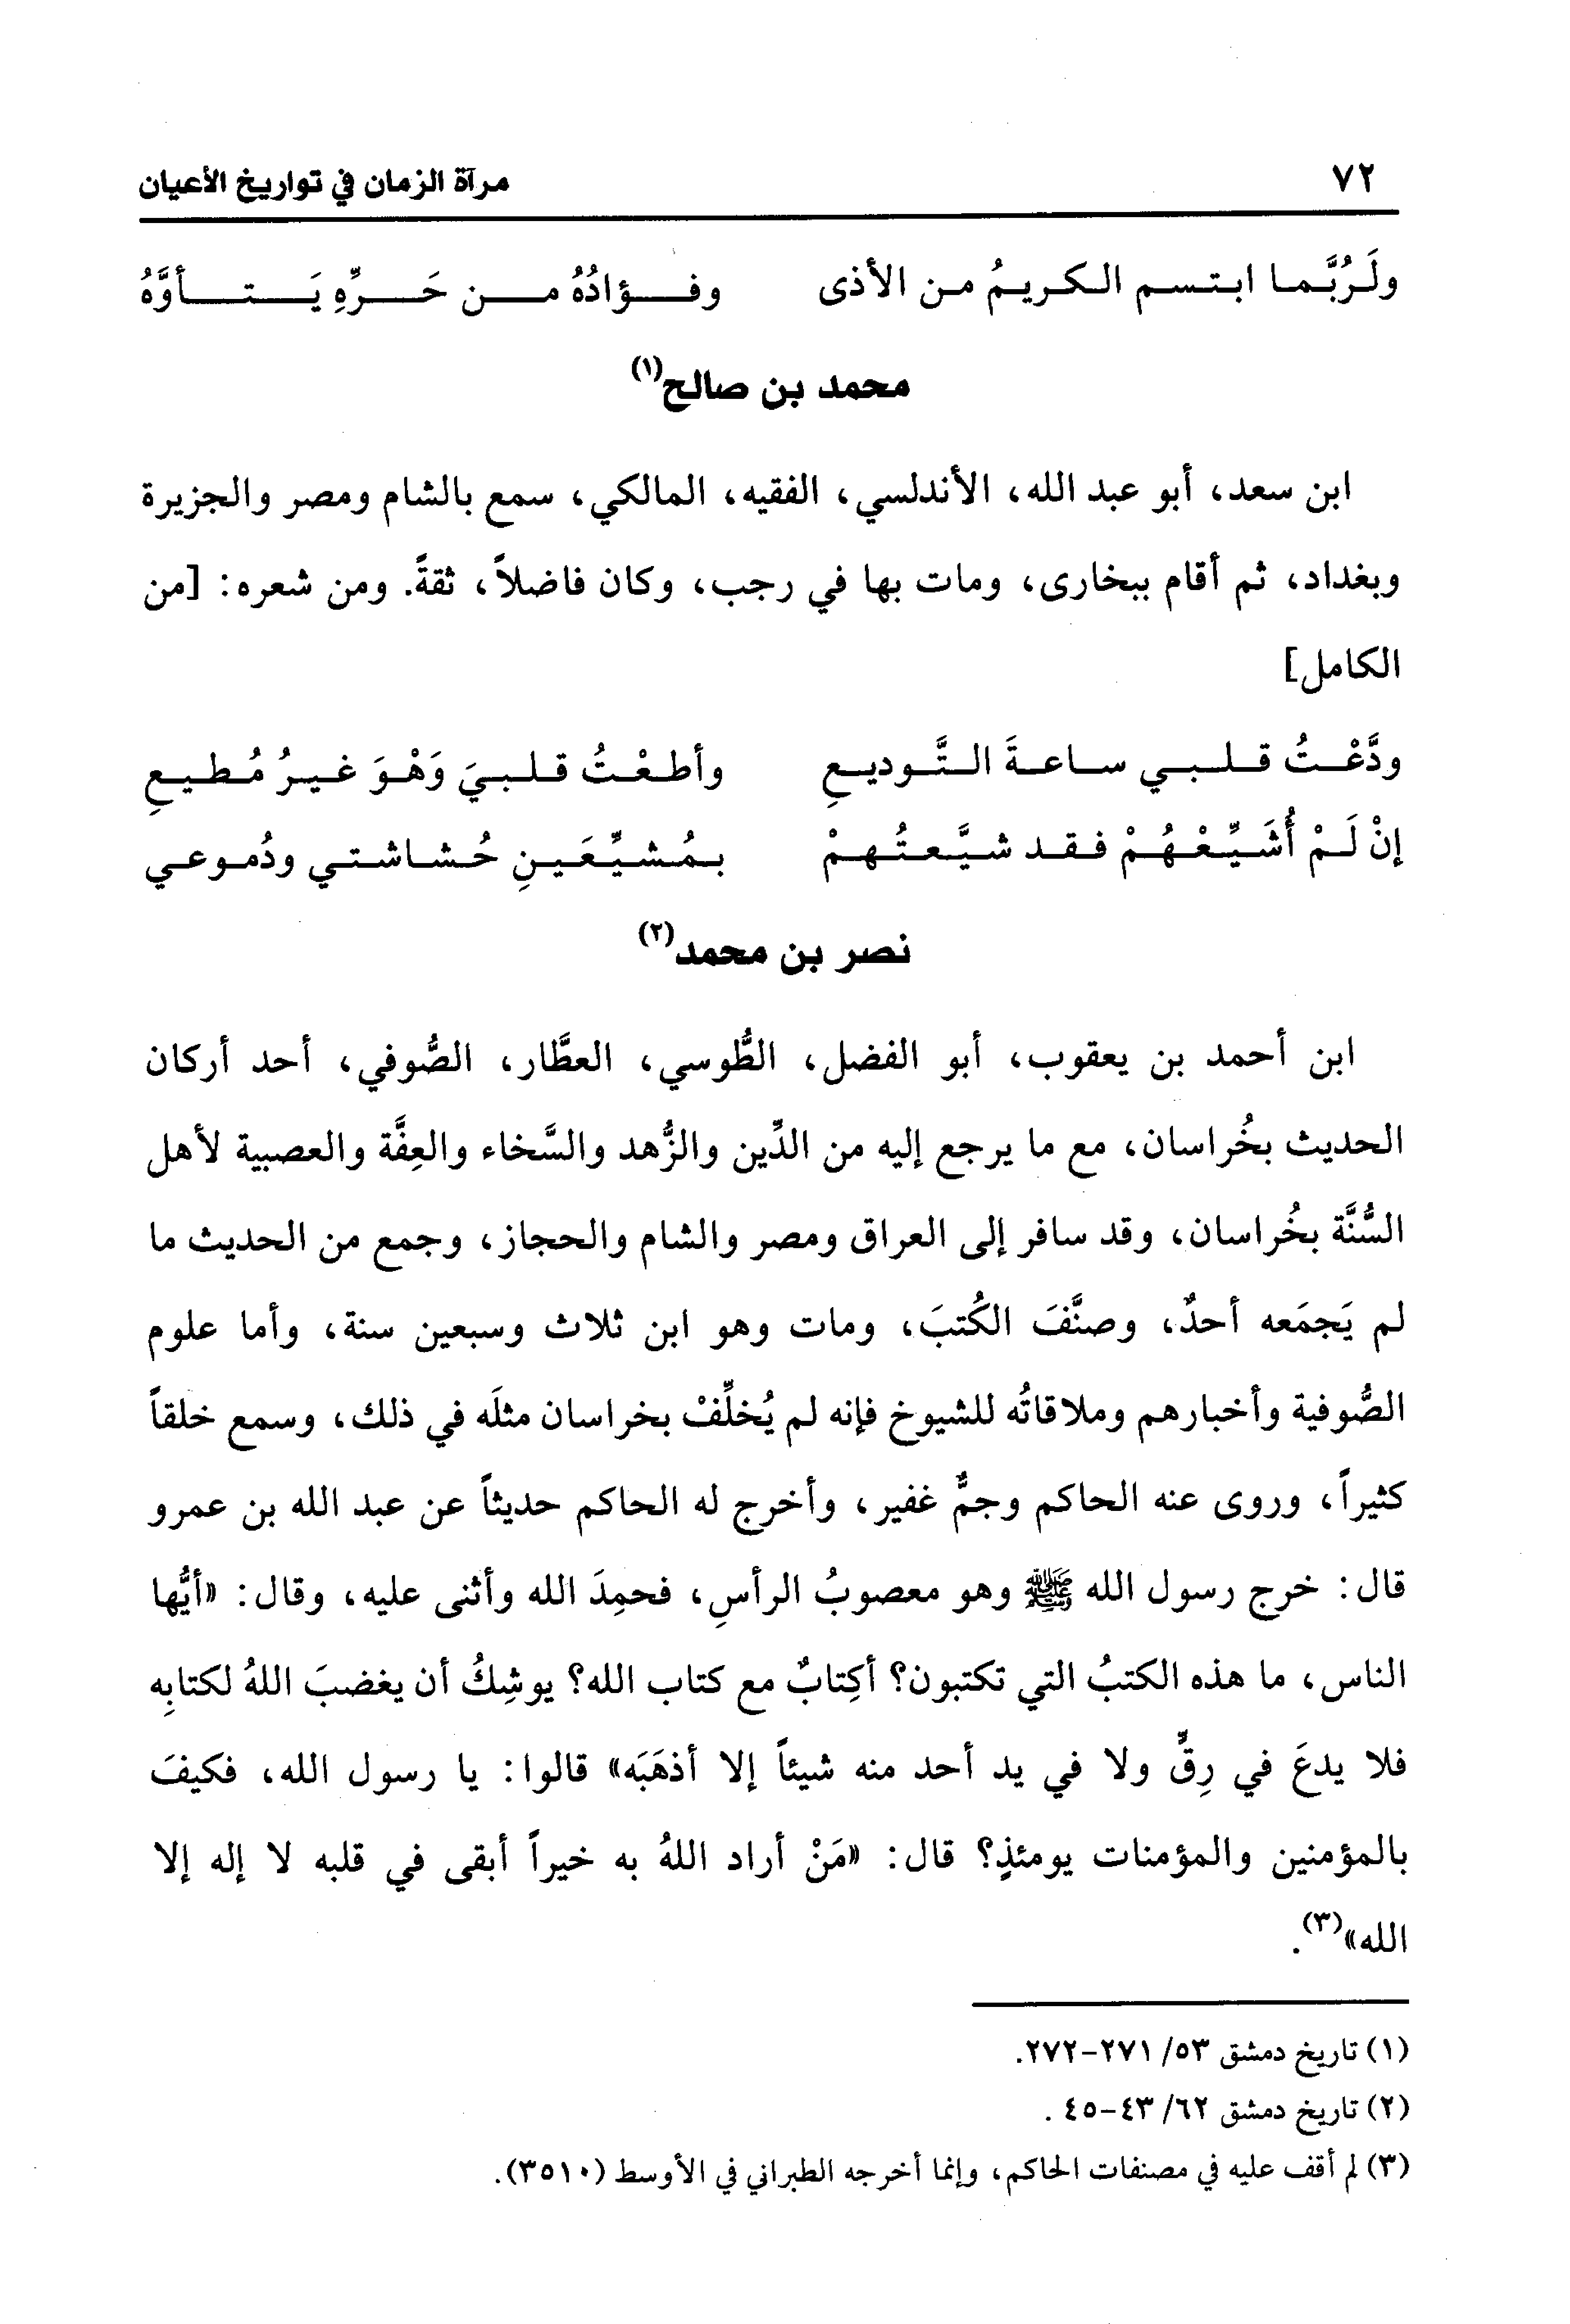 ٧٢ مرآة الزمان في تواريخ الأعيان
ولَرُبَّما ابتسم الكريمُ من الأذى وفؤادُهُ من حَرِّهِ يَتأوَّهُ
محمد بن صالح(١)
ابن سعد، أبو عبد الله، الأندلسي، الفقيه، المالكي، سمع بالشام ومصر والجزيرة
وبغداد، ثم أقام ببخارى، ومات بها في رجب، وكان فاضلاً، ثقةً. ومن شعره: [من
الكامل]
ودَّعْتُ قلبي ساعةَ التَّوديعِ وأطعْتُ قلبيَ وَهْوَ غيرُ مُطيعِ
إنْ لَمْ أُشَيِّعْهُمْ فقد شيَّعتُهمْ بمُشيِّعَينِ حُشاشتي ودُموعي
نصر بن محمد(٢)
ابن أحمد بن يعقوب، أبو الفضل، الطُّوسي، العطَّار، الصُّوفي، أحد أركان
الحديث بخُراسان، مع ما يرجع إليه من الدِّين والزُّهد والسَّخاء والعِفَّة والعصبية لأهل
السُّنَّة بخُراسان، وقد سافر إلى العراق ومصر والشام والحجاز، وجمع من الحديث ما
لم يَجمَعه أحدٌ، وصنَّفَ الكُتبَ، ومات وهو ابن ثلاث وسبعين سنة، وأما علوم
الصُّوفية وأخبارهم وملاقاتُه للشيوخ فإنه لم يُخلِّفْ بخراسان مثلَه في ذلك، وسمع خلقاً
كثيراً، وروى عنه الحاكم وجمٌّ غفير، وأخرج له الحاكم حديثاً عن عبد الله بن عمرو
قال: خرج رسول الله ﷺ وهو معصوبُ الرأسِ، فحمِدَ الله وأثنى عليه، وقال: «أيُّها
الناس، ما هذه الكتبُ التي تكتبون؟ أكِتابٌ مع كتاب الله؟ يوشِكُ أن يغضبَ اللهُ لكتابِه
فلا يدعَ في رِقٍّ ولا في يد أحد منه شيئاً إلا أذهَبَه» قالوا: يا رسول الله، فكيفَ
بالمؤمنين والمؤمنات يومئذٍ؟ قال: «مَنْ أراد اللهُ به خيراً أبقى في قلبه لا إله إلا
الله»(٣).
(١) تاريخ دمشق ٥٣/ ٢٧١-٢٧٢.
(٢) تاريخ دمشق ٦٢/ ٤٣-٤٥ .
(٣) لم أقف عليه في مصنفات الحاكم، وإنما أخرجه الطبراني في الأوسط (٣٥١٠).